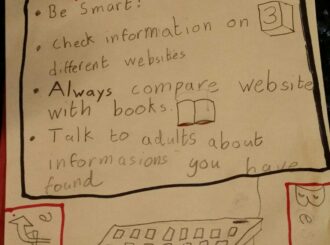 • Be Smart!
• Check information on 3
different websites
• Always compare website
with books.
• Talk to adults about
informasions you have
found
Be